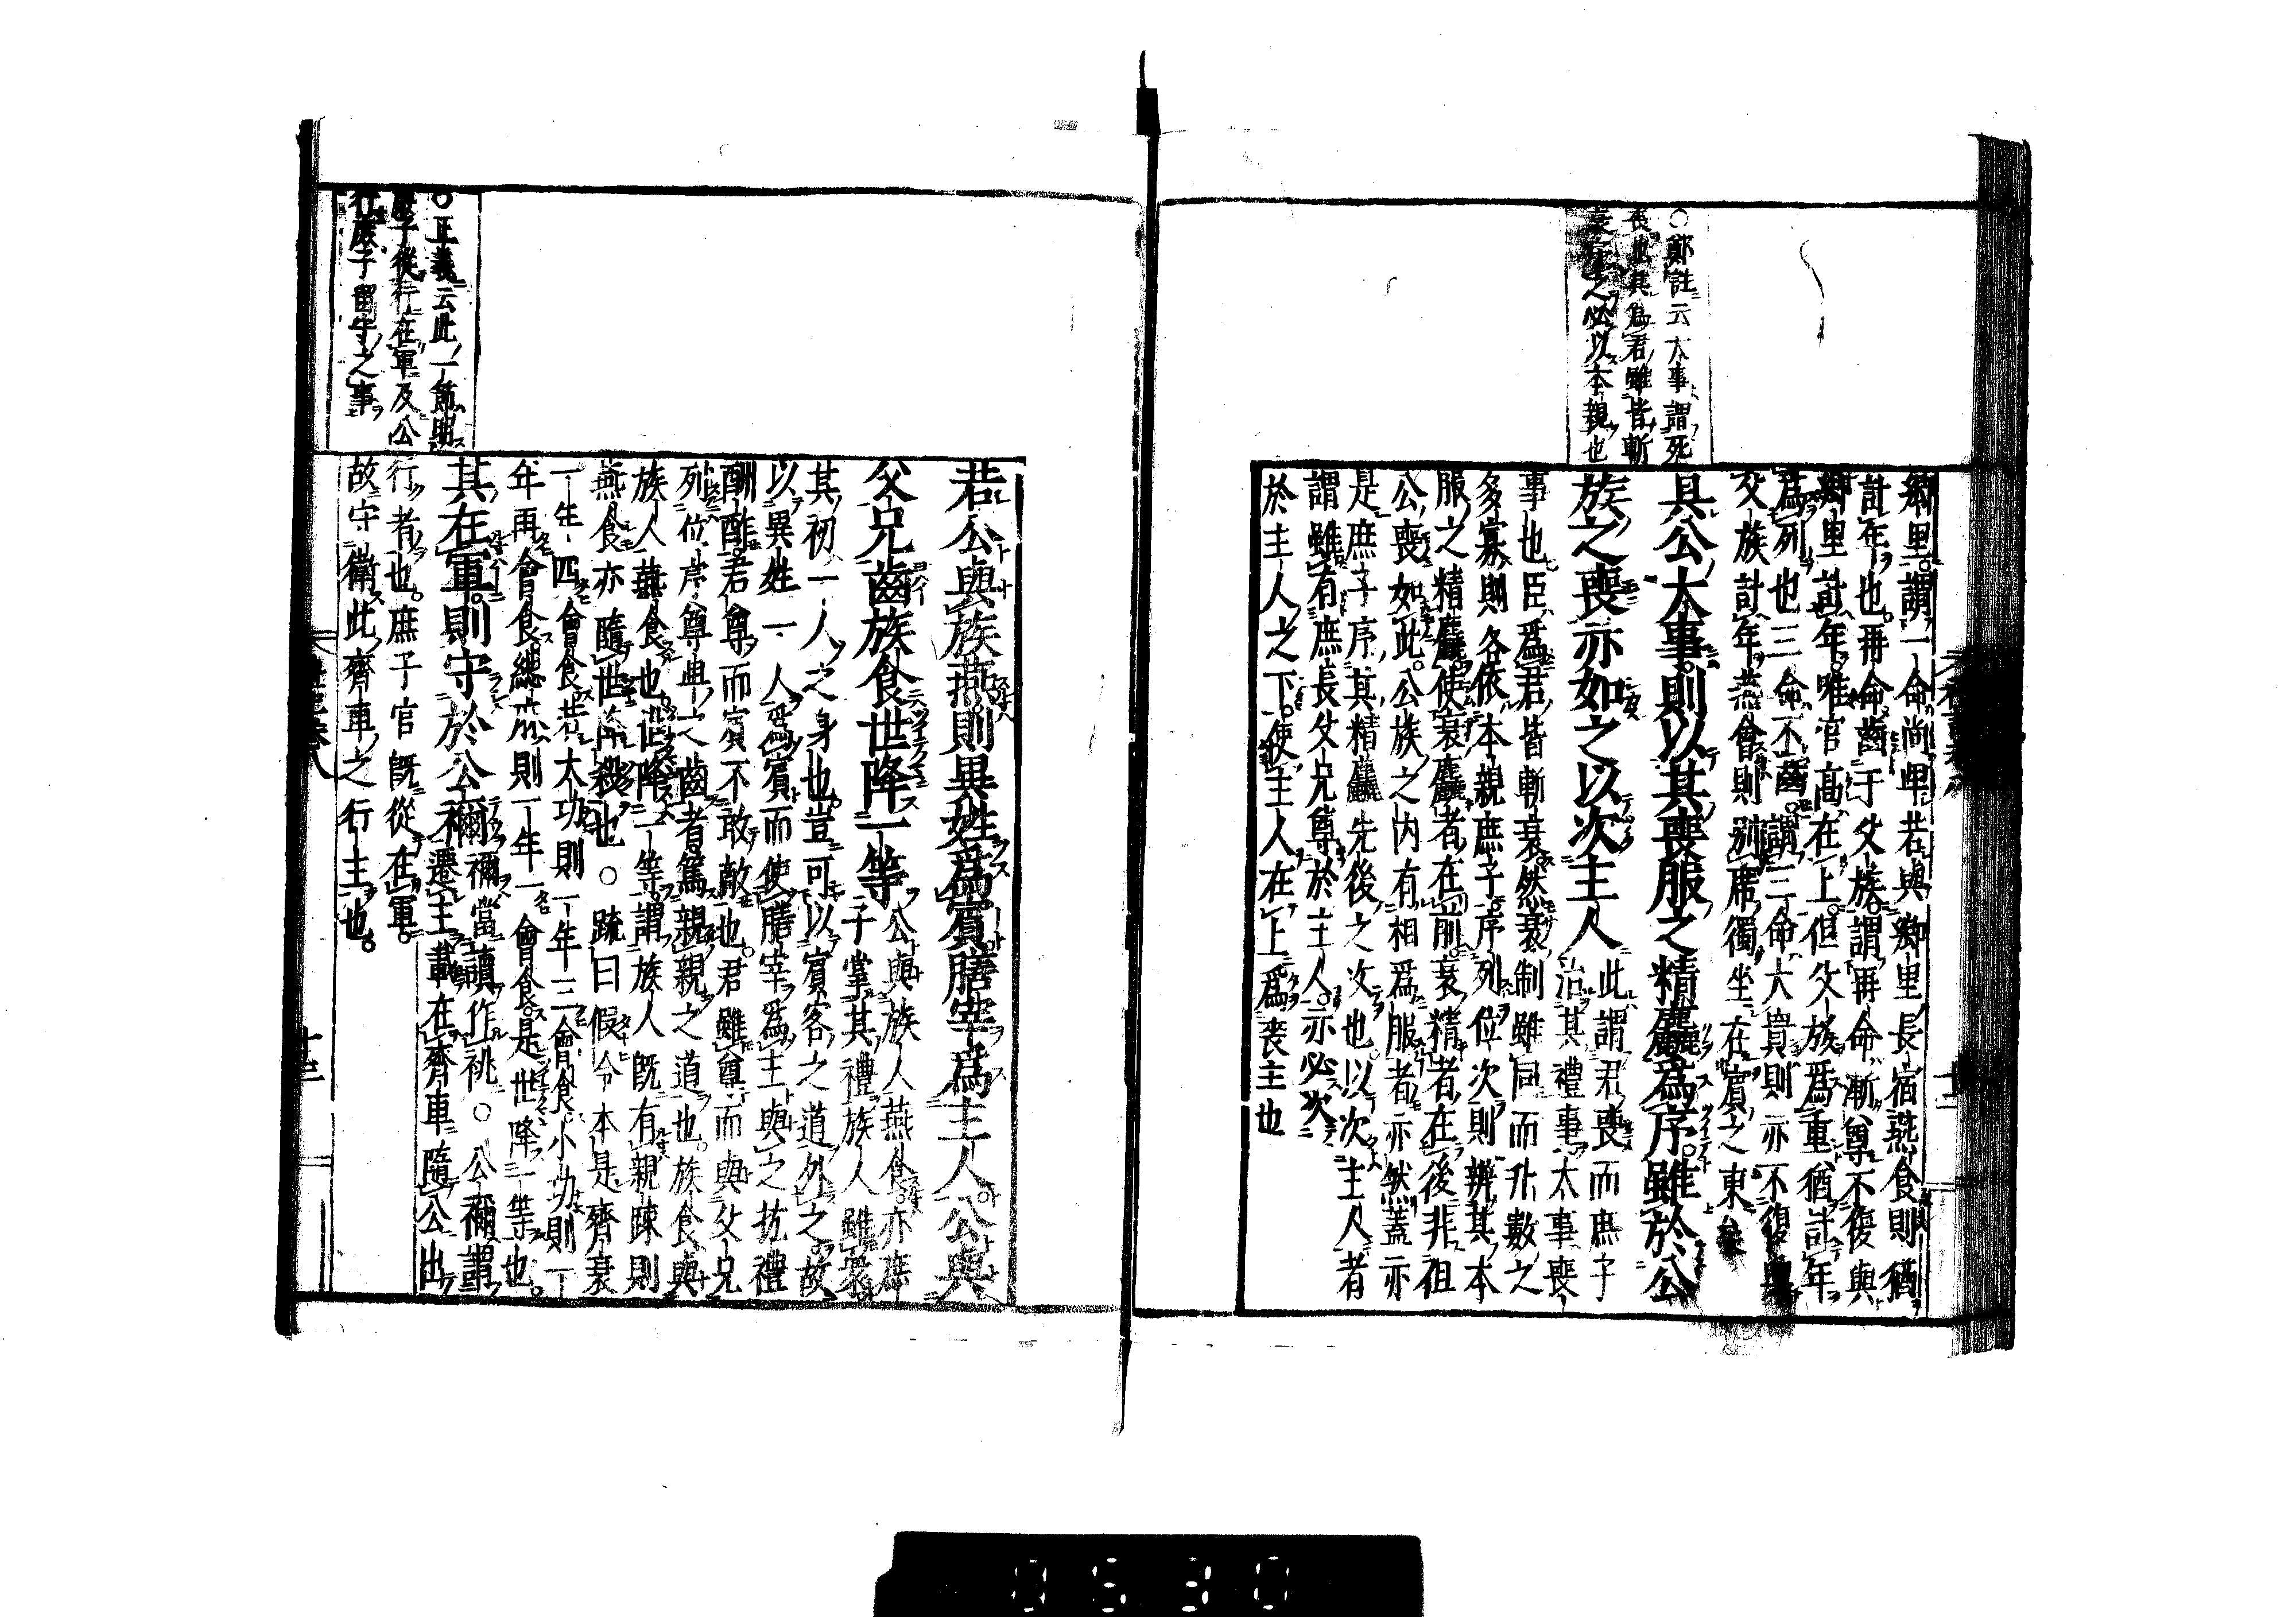 ○鄭註云大事謂死
喪也其為君雖皆斬
衰序之必以本親也
鄉里謂一命尚卑若與鄉里長宿燕食則猶
計年也再命齒于父族謂再命漸尊不復與
鄉里計年唯官高在上但父族為重猶計年
為列也三命不齒謂三命大貴則亦不復與
父族計年燕會則別席獨坐在賓之東
其公大事則以其喪服之精麤為序雖於公
族之喪亦如之以次主人
此謂君喪而庶子
治其禮事大事喪
事也臣為君皆斬衰然衰制雖同而升數之
多寡則各依本親庶子序列位次則辨其本
服之精麤使衰麤者在前衰精者在後非祖
公喪如此公族之內有相為服者亦然蓋亦
是庶子序其精麤先後之次也以次主人者
謂雖有庶長父兄尊於主人亦必次
於主人之下使主人在上為喪主也
若公與族燕則異姓為賓膳宰為主人公與
父兄齒族食世降一等
公與族人燕食亦庶
子掌其禮族人雖衆
其初一人之身也豈可以賓客之道外之故
以異姓一人為賓而使膳宰為主與之抗禮
酬酢君尊而賓不敢敵也君雖尊而與父兄
列位序尊卑之齒者篤親親之道也族食與
族人燕食也世降一等謂族人既有親疎則
燕食亦隨世降殺也○疏曰假令本是齊衰
一年四會食若大功則一年三會食小功則一
年再會食緦麻則一年一會食是世降一等也
其在軍則守於公禰
禰當讀作祧○公禰謂
遷主載在齊車隨公出
行者也庶子官既從在軍
故守衛此齊車之行主也
○正義云此一節明
庶子從行在軍及公
行庶子留守之事
十三